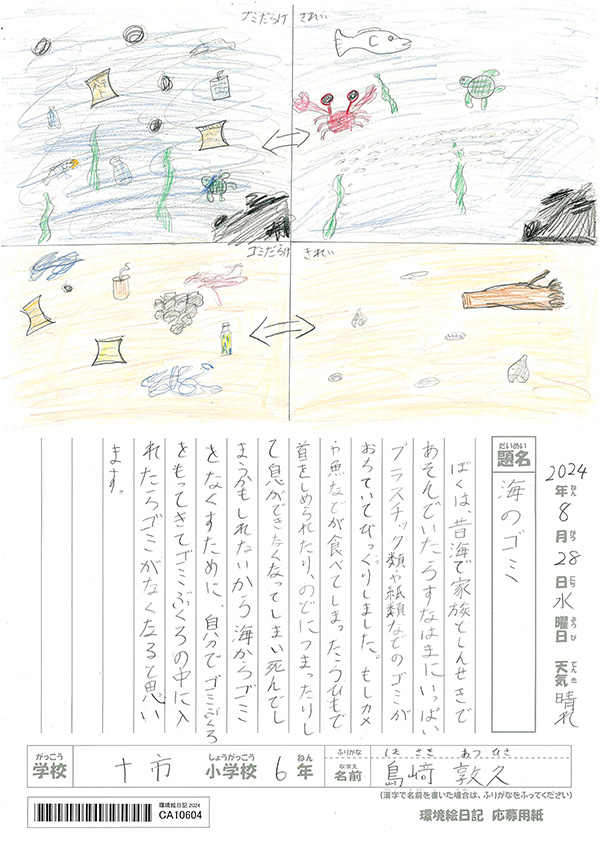 ゴミだらけ
きれい
ゴミだらけ
きれい
2024年ねん8月がつ28日にち水曜日ようび 天気てんき晴れ
だいめい
題名
海のゴミ
ぼくは、昔海で家族としんせきで
あそんでいたらすなはまにいっぱい
プラスチック類や紙類などのゴミが
おちていてびっくりしました。もしカメ
や魚などが食べてしまったらひもで
首をしめられたり、のどにつまったりし
て息ができなくなってしまい死んでし
まうかもしれないから海からゴミ
をなくすために、自分でゴミぶくろ
をもってきてゴミぶくろの中に入
れたらゴミがなくなると思い
ます。
がっこう
学校
十市
しょうがっこう
小学校
6
ねん
年
ふりがな
しま さき あつ ひさ
なまえ
名前
島﨑 敦久
(漢字で名前を書いた場合は、ふりがなをふってください)
環境絵日記 2024
CA10604
環境絵日記 応募用紙